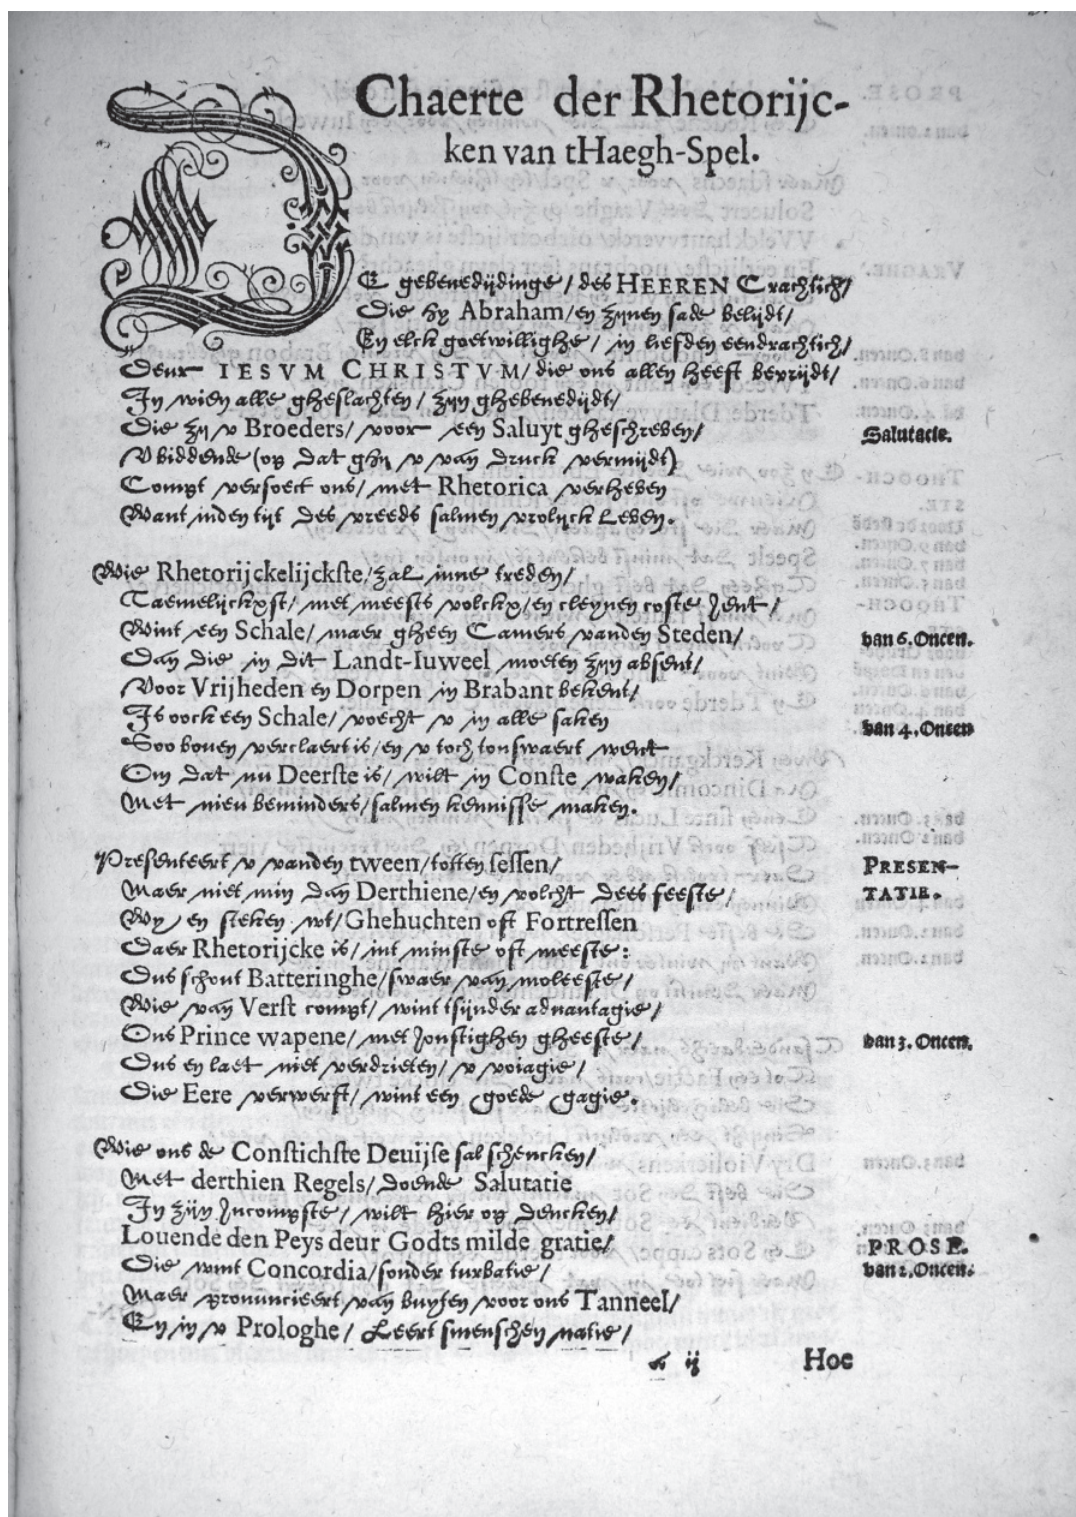 Chaerte der Rhetorijc-
ken van tHaegh-Spel.
DE gebenedijdinge / des HEEREN Crachtich /
Die hy Abraham / en zijnen sade belijdt /
En elck goetwillighe / in liefden eendrachtich /
Deur IESVM CHRISTVM / die ons allen heeft bevrijdt /
In wien alle gheslachten / zijn ghebenedijdt /
Die zij v Broeders / voor een Saluyt gheschreven /
Salutatie.
Vbiddende (op dat ghij v van druck vermijdt)
Compt versoect ons / met Rhetorica verheven
Want inden tijt des vreeds salmen vrolijck Leven.
Wie Rhetorijckelijckste / zal inne treden /
Taemelijckxst / met meests volckx / en cleynen coste Jent /
Wint een Schale / maer gheen Camers vanden Steden /
van 6. Oncen.
Dan die in dit Landt-Iuweel moeten zijn absent /
Voor Vrijheden en Dorpen in Brabant bekent /
Is oock een Schale / voecht v in alle saken
van 4. Oncen
Soo boven verclaert is / en v toch tonswaert went
Om dat nu Deerste is / wilt in Conste waken /
Met nieu beminders / salmen kennisse maken.
Presenteert v vanden tween / totten sessen /
PRESEN-
TATIE.
Maer niet min dan Derthiene / en volcht dees feeste /
Wy en steken wt / Ghehuchten oft Fortressen
Daer Rhetorijcke is / int minste oft meeste:
Dus schout Batteringhe / swaer van moleeste /
Wie van Verst compt / wint tsijnder advantagie /
Ons Prince wapene / met Jonstighen gheeste /
van 3. Oncen.
Dus en laet niet verdrieten / v voiagie /
Die Eere verwerft / wint een goede gagie.
Wie ons de Constichste Deuijse sal schencken /
Met derthien Regels / doende Salutatie
In zijn Incompste / wilt hier op dencken /
Louende den Peys deur Godts milde gratie /
PROSE.
Die wint Concordia / sonder turbatie /
van 2. Oncen.
Maer pronuncieert van buyten voor ons Tanneel /
En in v Prologhe / Leert smenschen natie /
ij
Hoe